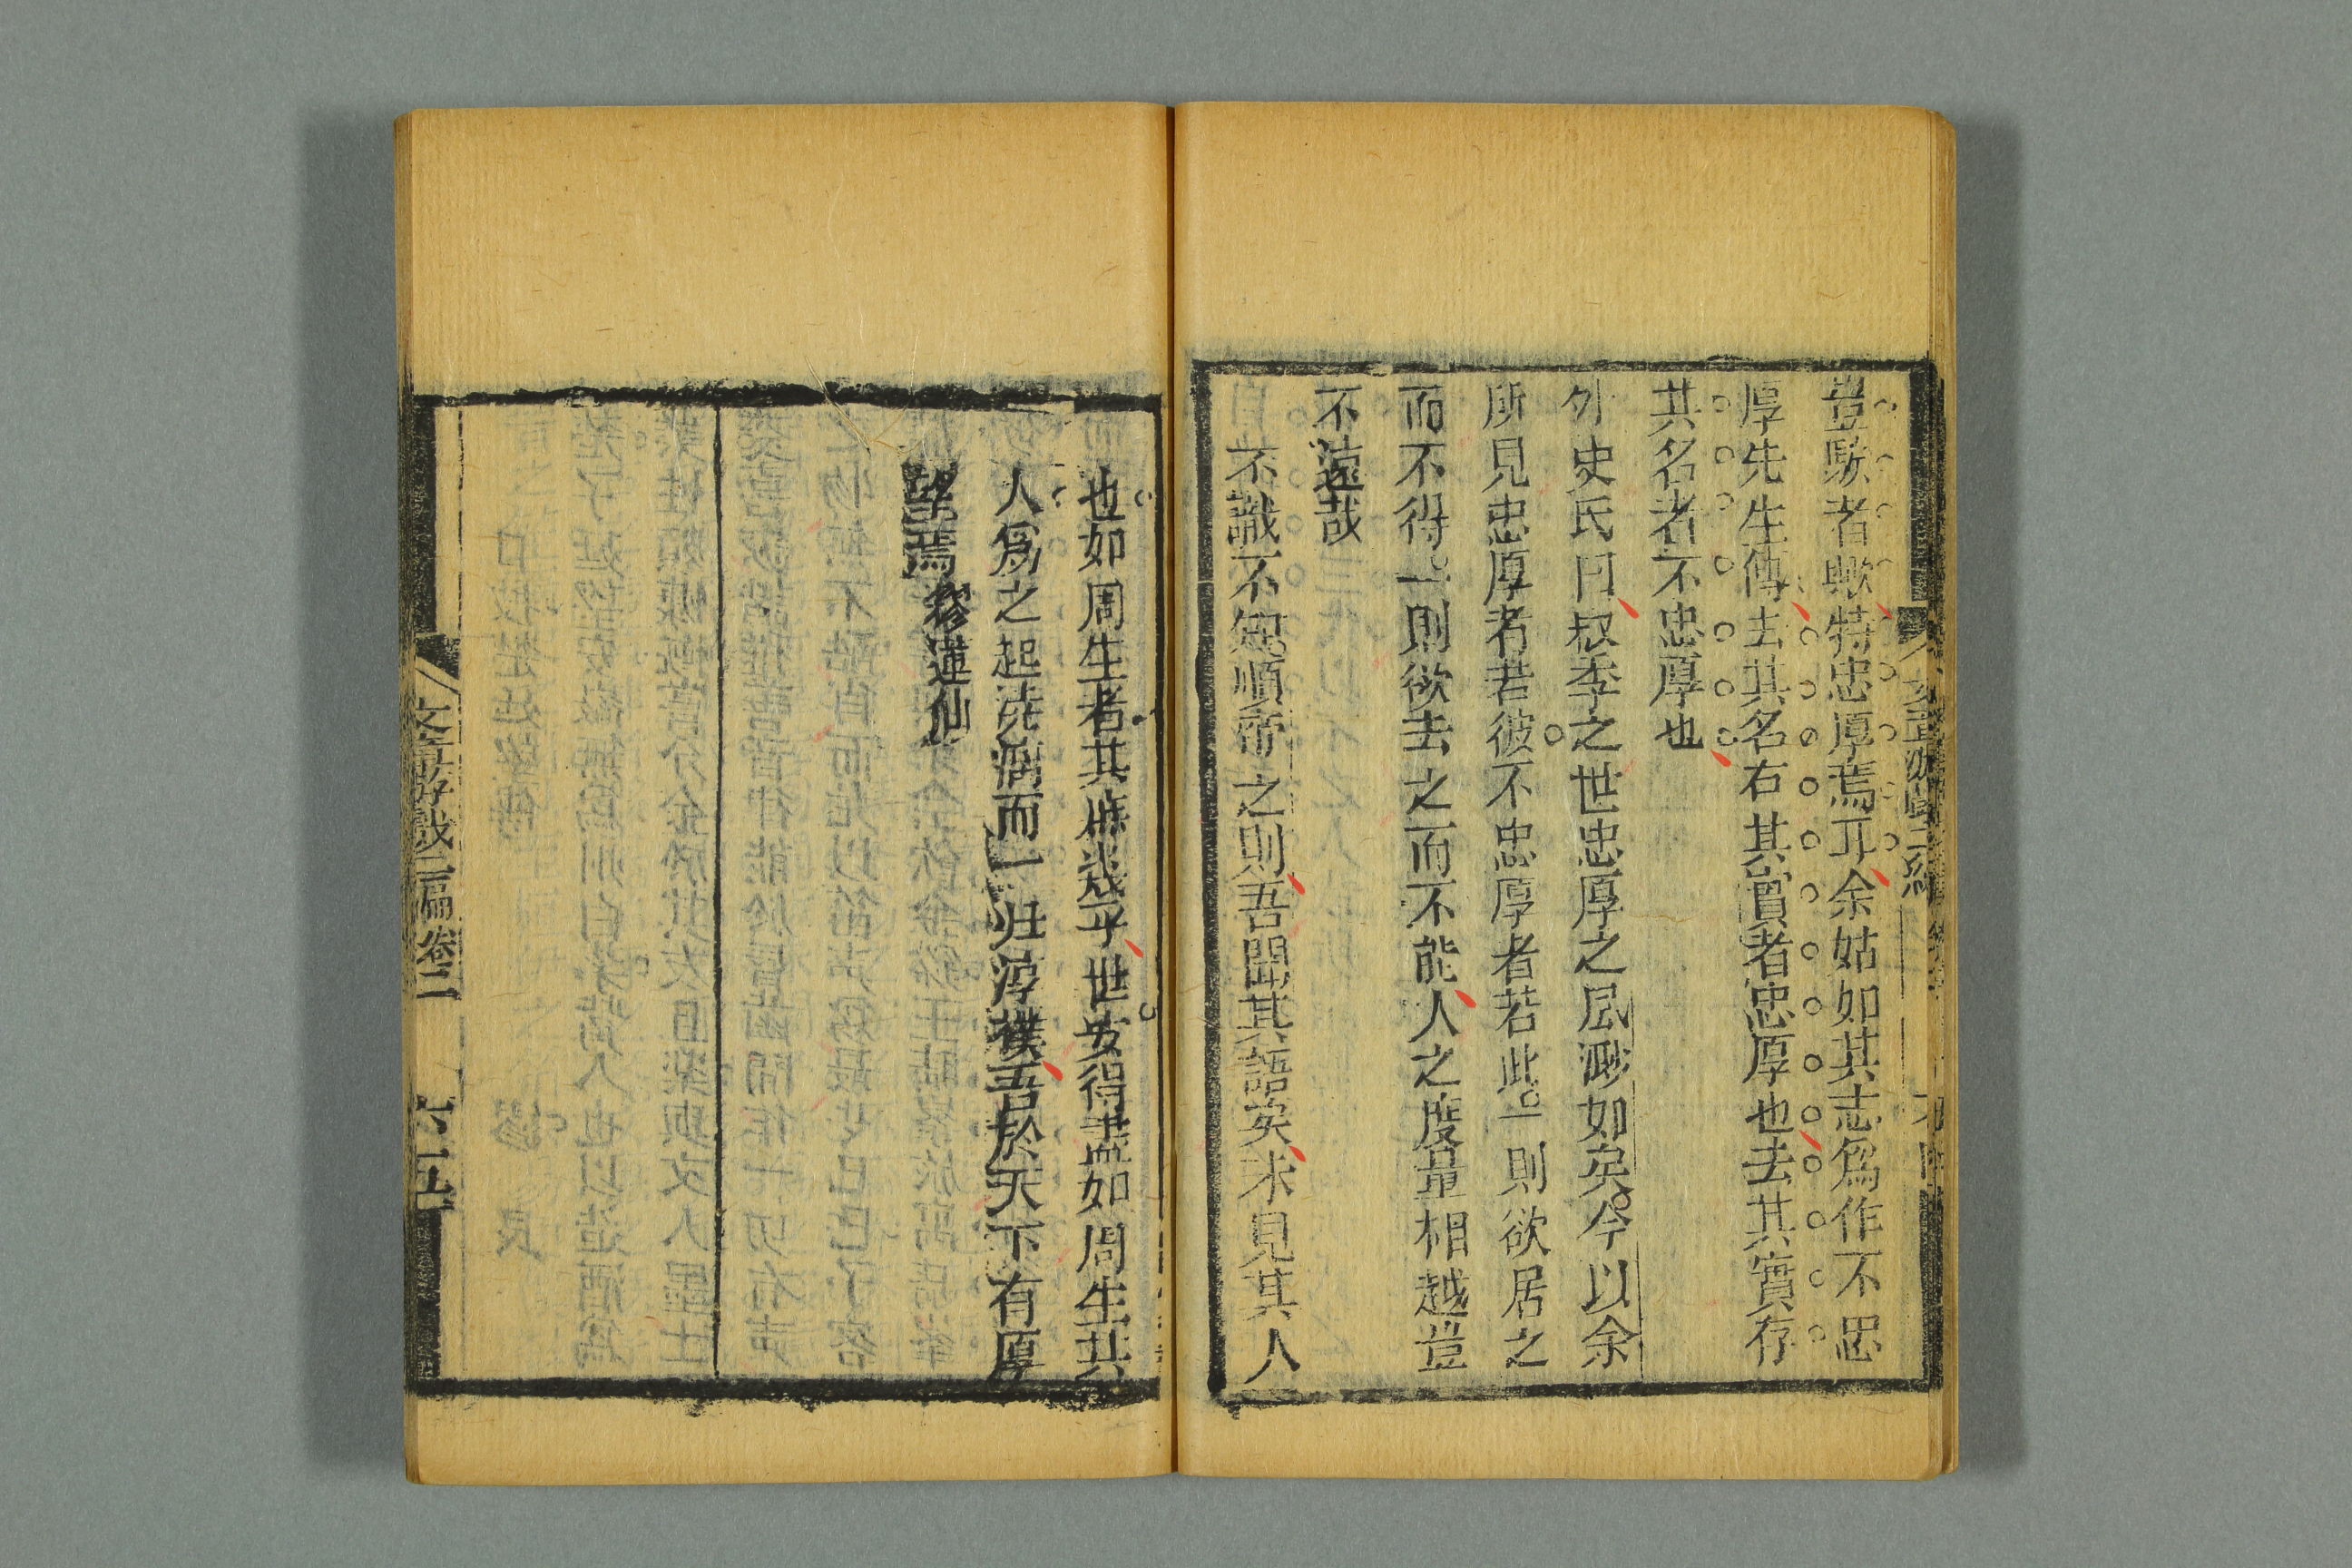 豈騃者歟特忠厚焉耳余姑如其志爲作不忠
厚先生傳去其名右其實者忠厚也去其實存
其名者不忠厚也
外史氏曰叔季之世忠厚之風渺如矣今以余
所見忠厚者若彼不忠厚者若此一則欲居之
而不得一則欲去之而不能人之度量相越豈
不遠哉
不識不知順帝之則吾聞其語矣未見其人
也如周生者其庶幾乎世安得盡如周生共
人爲之起澆漓而一归淳樸吾於天下有厚
望焉 繆蓮仙
文章游戲二編 卷二 六十五